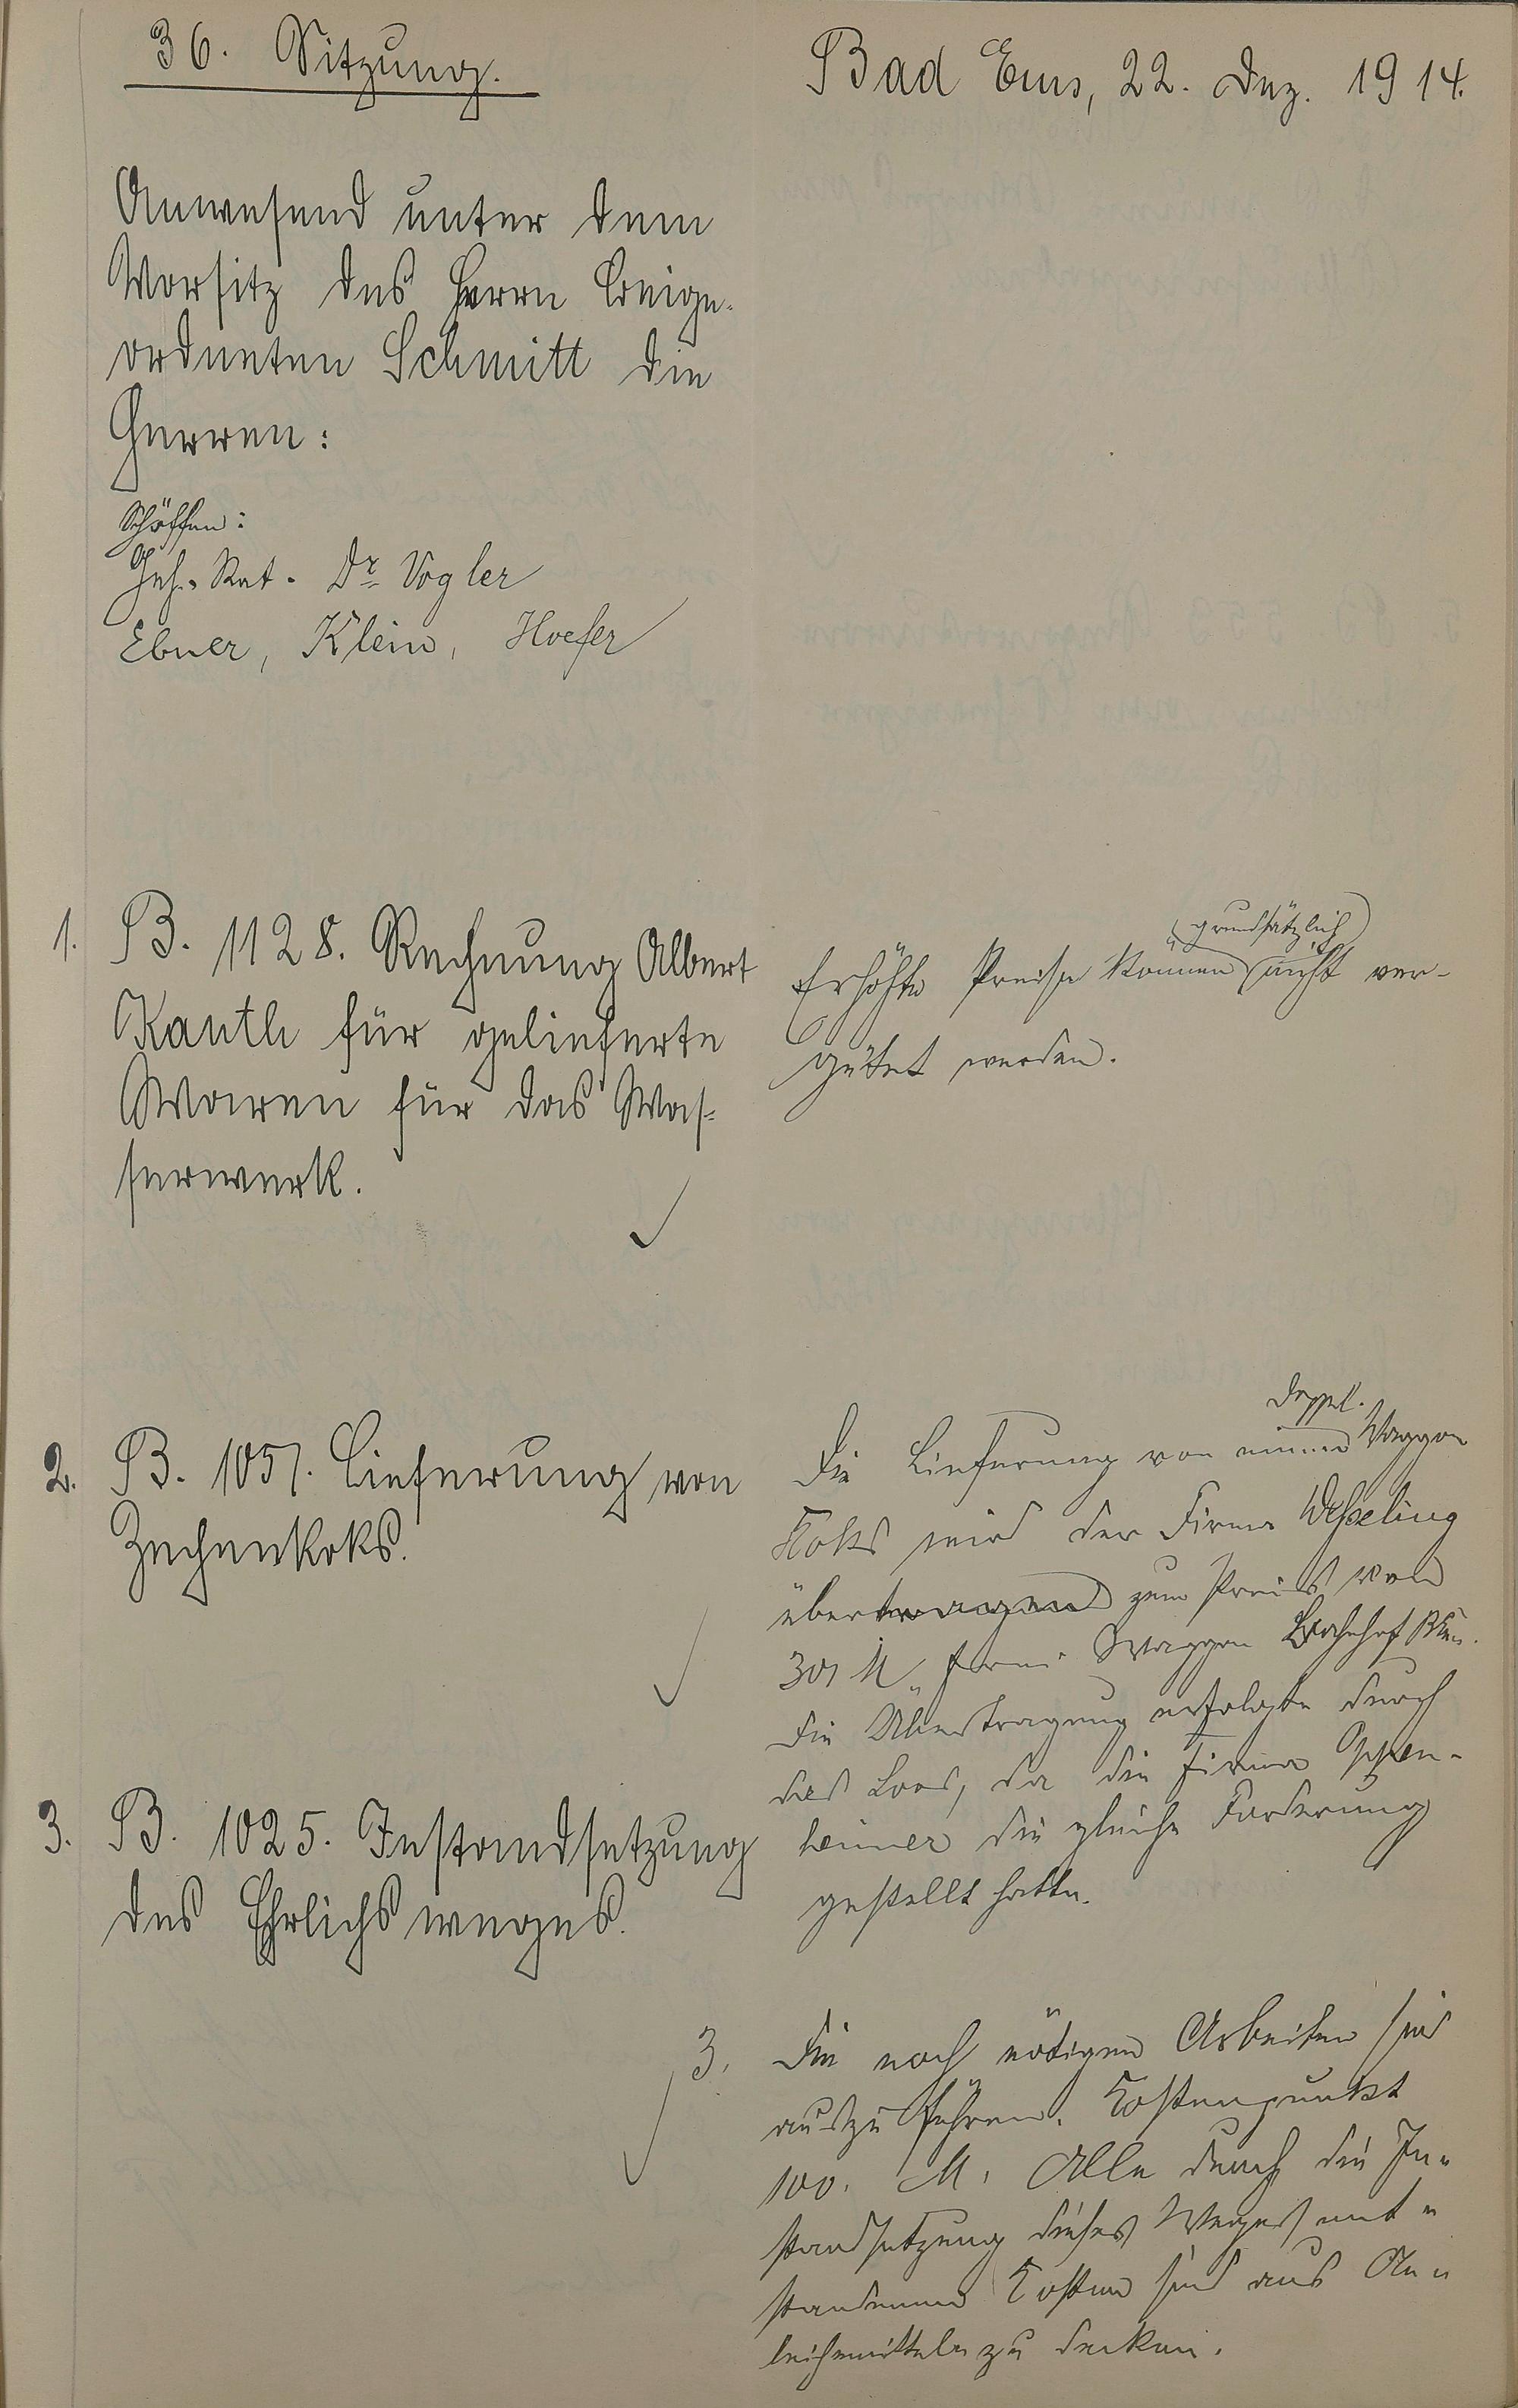 36. Sitzung.
Bad Ems, 22. Dez. 1914.
Anwesend unter dem
Vorsitz des Herrn Beige-
ordneten Schmitt die
Herren:
Schöffen:
Geh. Rat. Dr. Vogler
Ebner, Klein, Hoefer
1. B. 1128. Rechnung Albert
Kauth für gelieferte
Waaren für das Was-
serwerk.
grundsätzlich
Erhöhte Preise können nicht ver-
gütet werden.
2. B. 1057. Lieferung von
Zechenkoks.
Doppel-
Die Lieferung von einem Waggon
Koks wird der Firma Wesseling
übertragen zum Preis von
301 M Waggon Bahnhof
Die Übertragung erfolgte durch
das Loos, da die Firma Oppen-
heimer die gleiche Forderung
gestellt hatte.
3. B. 1025. Instandsetzung
des Ehrlichsweges.
3. Die noch nötigen Arbeiten sind
auszuführen. Kostenpunkt
100. M. Alle durch die In-
standsetzung dieses Weges ent-
standenen Kosten sind aus An-
leihemitteln zu decken.